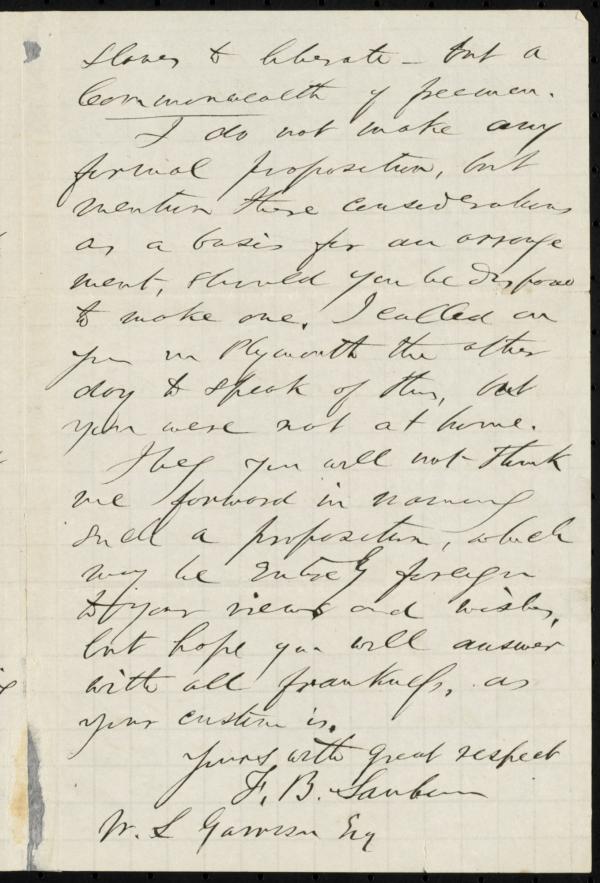 slaves to liberate – but a
Commonwealth of freemen.
I do not make any
formal proposition, but
mention these considerations
as a basis for an arrange
ment, should you be disposed
to make one. I called on
you in Plymouth the other
day to speak of this, but
you were not at home.
I beg you will not think
me forward in naming
such a proposition, which
may be entirely foreign
to your views and wishes,
but hope you will answer
with all frankness, as
your custom is.
Yours with great respect
F. B. Sanborn
W. L Garrison Esq